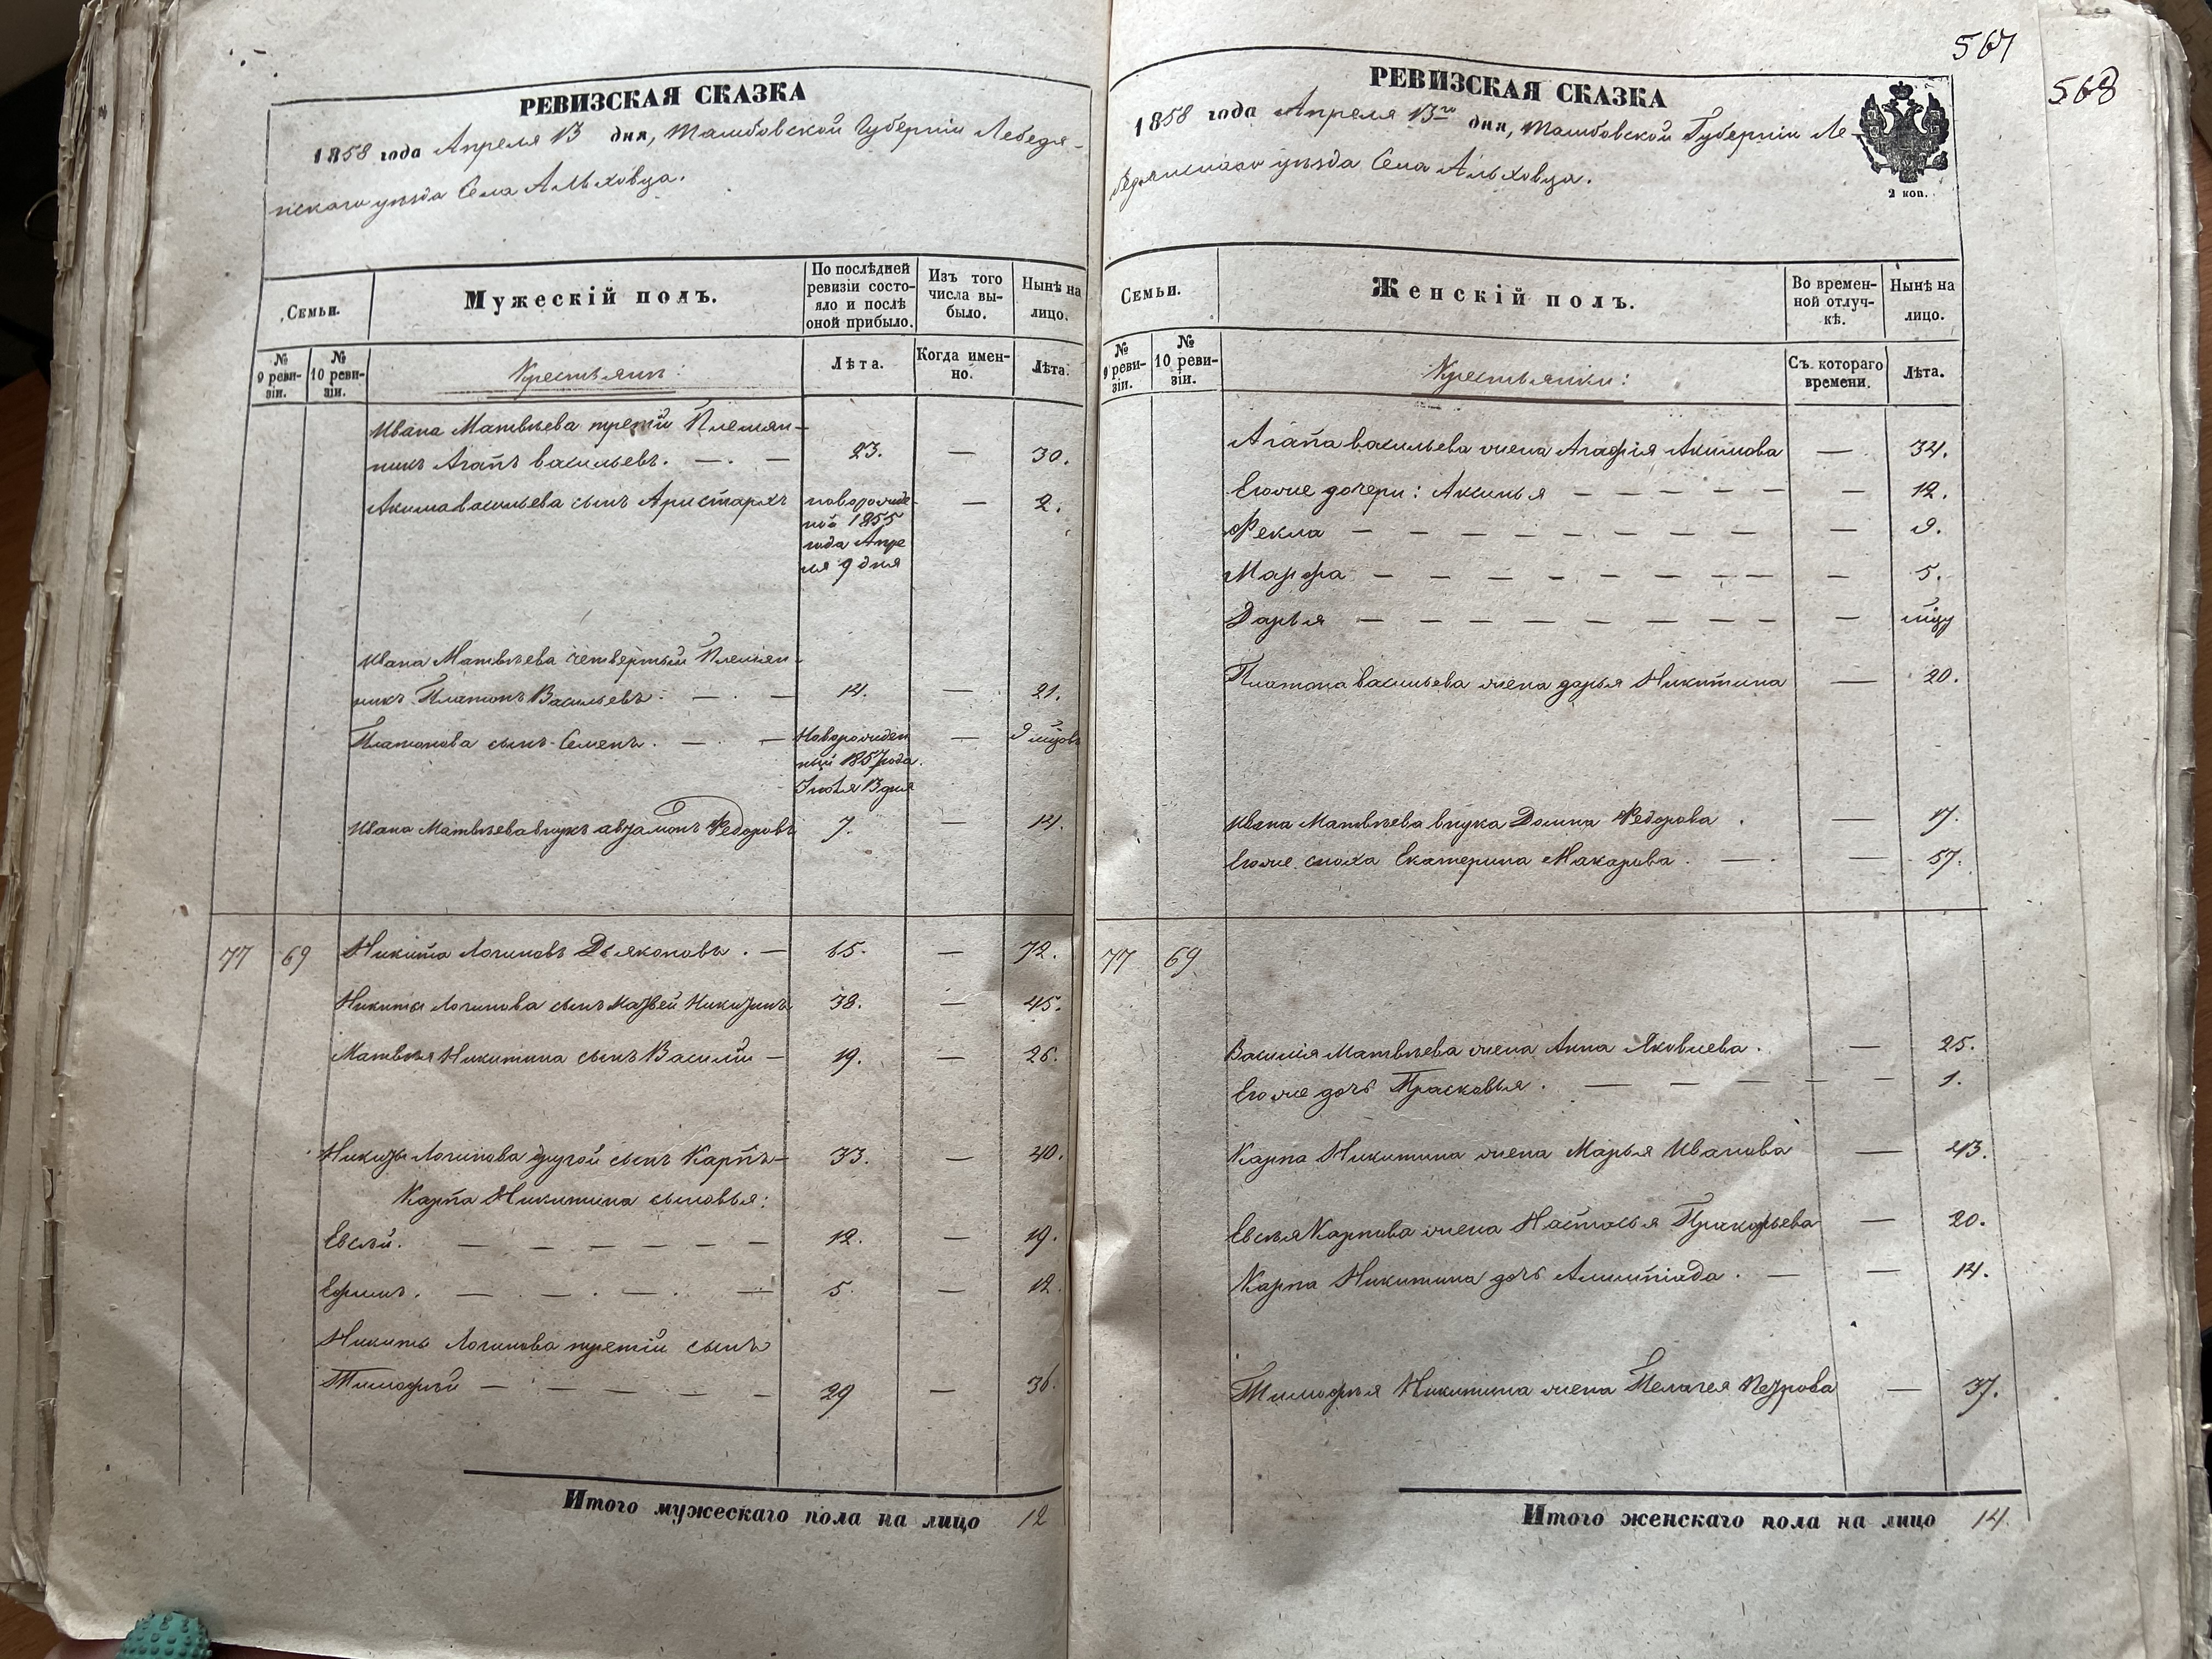 567
568
РЕВИЗСКАЯ СКАЗКА
1858 года Апреля 13 дня, Тамбовской Губернии Лебедя-
нскаго уѣзда Села Альховца.
Семьи.
Мужескій полъ.
По послѣдней ревизіи состояло и послѣ оной прибыло.
Изъ того числа выбыло.
Нынѣ на лицо.
№ 9 ревизіи.
№ 10 ревизіи.
Крестьяне:
Лѣта.
Когда именно.
Лѣта.
Ивана Матвѣева третій Племян-
никъ Агапъ Васильевъ. — 23. — 30.
Акима Васильева сынъ Аристархъ новорожденой 1855 года Апреля 9 дня — 2.
Ивана Матвѣева четвертый Племян-
никъ Платонъ Васильевъ. — 14. — 21.
Платонова сынъ Семенъ. — Новорожденный 1857 года Июля 13 дня — 9 мцовъ
Ивана Матвѣева внукъ Автамонъ Федоровъ 7. — 14.
77 69 Никита Логиновъ Дьяконовъ. — 65. — 72.
Никиты Логинова сынъ Матвей Никитинъ 38. — 45.
Матвѣя Никитина сынъ Василій — 19. — 26.
Никиты Логинова другой сынъ Карпъ — 33. — 40.
Карпа Никитина сыновья:
Евсѣй. — 12. — 19.
Ефимъ. — 5. — 12.
Никиты Логинова третій сынъ
Тимофѣй — 29 — 36.
Итого мужескаго пола на лицо 12
РЕВИЗСКАЯ СКАЗКА
1858 года Апреля 13го дня, Тамбовской Губерніи Ле-
бедянскаго уѣзда Села Альховца.
2 коп.
Семьи.
Женскій полъ.
Во временной отлучкѣ.
Нынѣ на лицо.
№ 9 ревизіи.
№ 10 ревизіи.
Крестьянки:
Съ котораго времени.
Лѣта.
Агапа Васильева жена Агафія Акимова — 34.
Егоже дочери: Аксинья — 12.
Фекла — 9.
Марфа — 5.
Дарья —
Платона Васильева жена Дарья Никитина — 20.
Ивана Матвѣева внука Домна Федорова. — 17.
Егоже сноха Екатерина Макарова. — 57.
77 69
Василія Матвѣева жена Анна Яковлева. — 25.
Егоже дочь Прасковья. — 1.
Карпа Никитина жена Марья Иванова — 43.
Евсѣя Карпова жена Настасья Пракофьева — 20.
Карпа Никитина дочь Алимпіада. — 14.
Тимофѣя Никитина жена Пелагея Петрова — 37.
Итого женскаго пола на лицо 14.